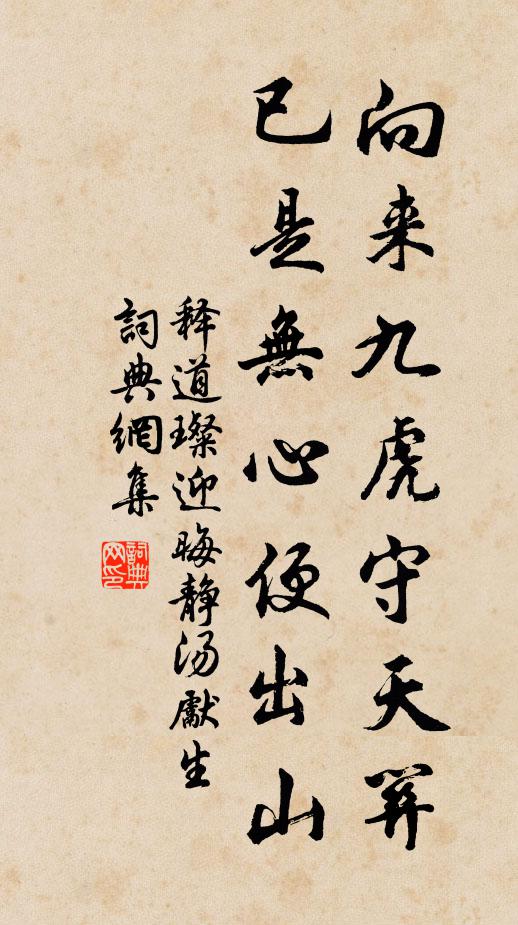 向来九虎守天关
已是無心便出山
释道璨迎晦静汤獻生
詞典網集
詞典网印